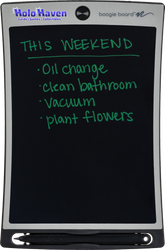 Holo Haven
boogie board
THIS WEEKEND
· Oil change
· clean bathroom
· Vacuum
· plant flowers